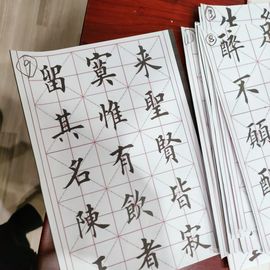 ⑨
来聖賢皆寂
寞惟有飲者
留其名陳王
⑧
醉不願醒